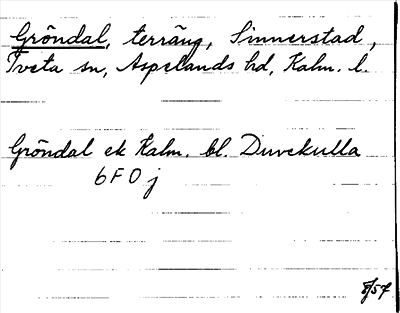 Gröndal, terräng, Sinnerstad,
Tveta sn, Aspelands hd, Kalm. l.
Gröndal ek Kalm. bl. Duvekulla
6F0j